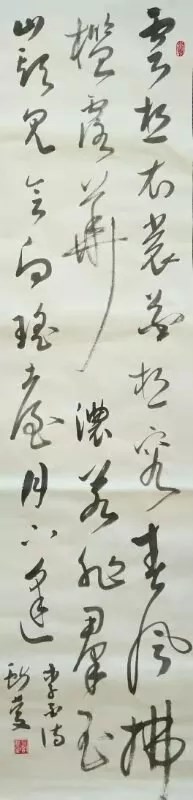 雲想衣裳花想容春風拂
檻露華濃若非羣玉
山頭見會向瑤臺月下逢
李白詩